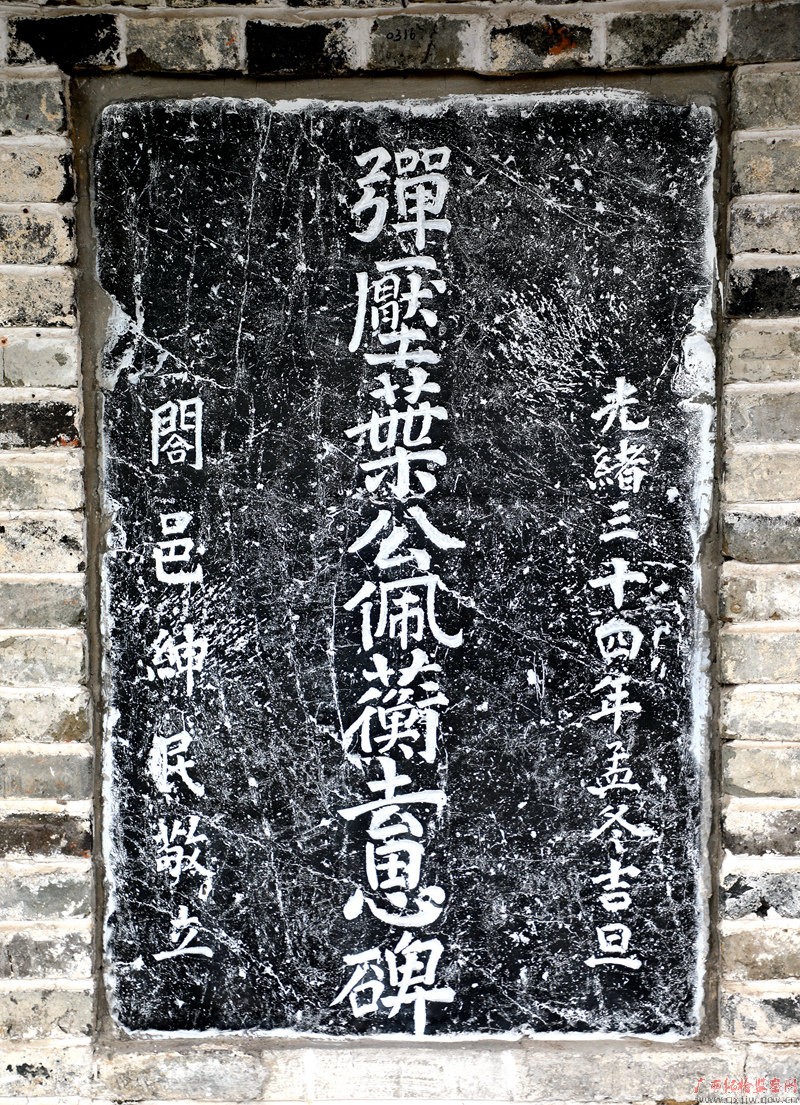 0316
光緒三十四年孟冬吉旦
彈壓葉公佩蘅去思碑
閤邑紳民敬立
广西纪检监察网
www.gxjjw.gov.cn